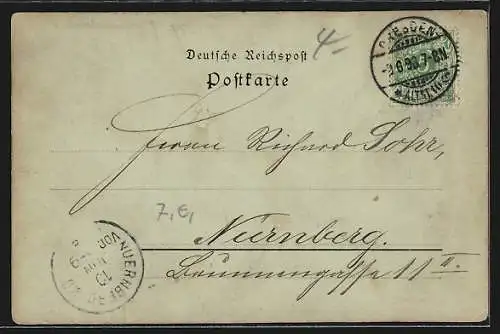 4-
Deutsche Reichspost
Postkarte
DRESDEN
ALTST.
Herrn Richard Sohr,
7,E,
Nürnberg.
Brunnengasse 11 II.
NUERNBERG